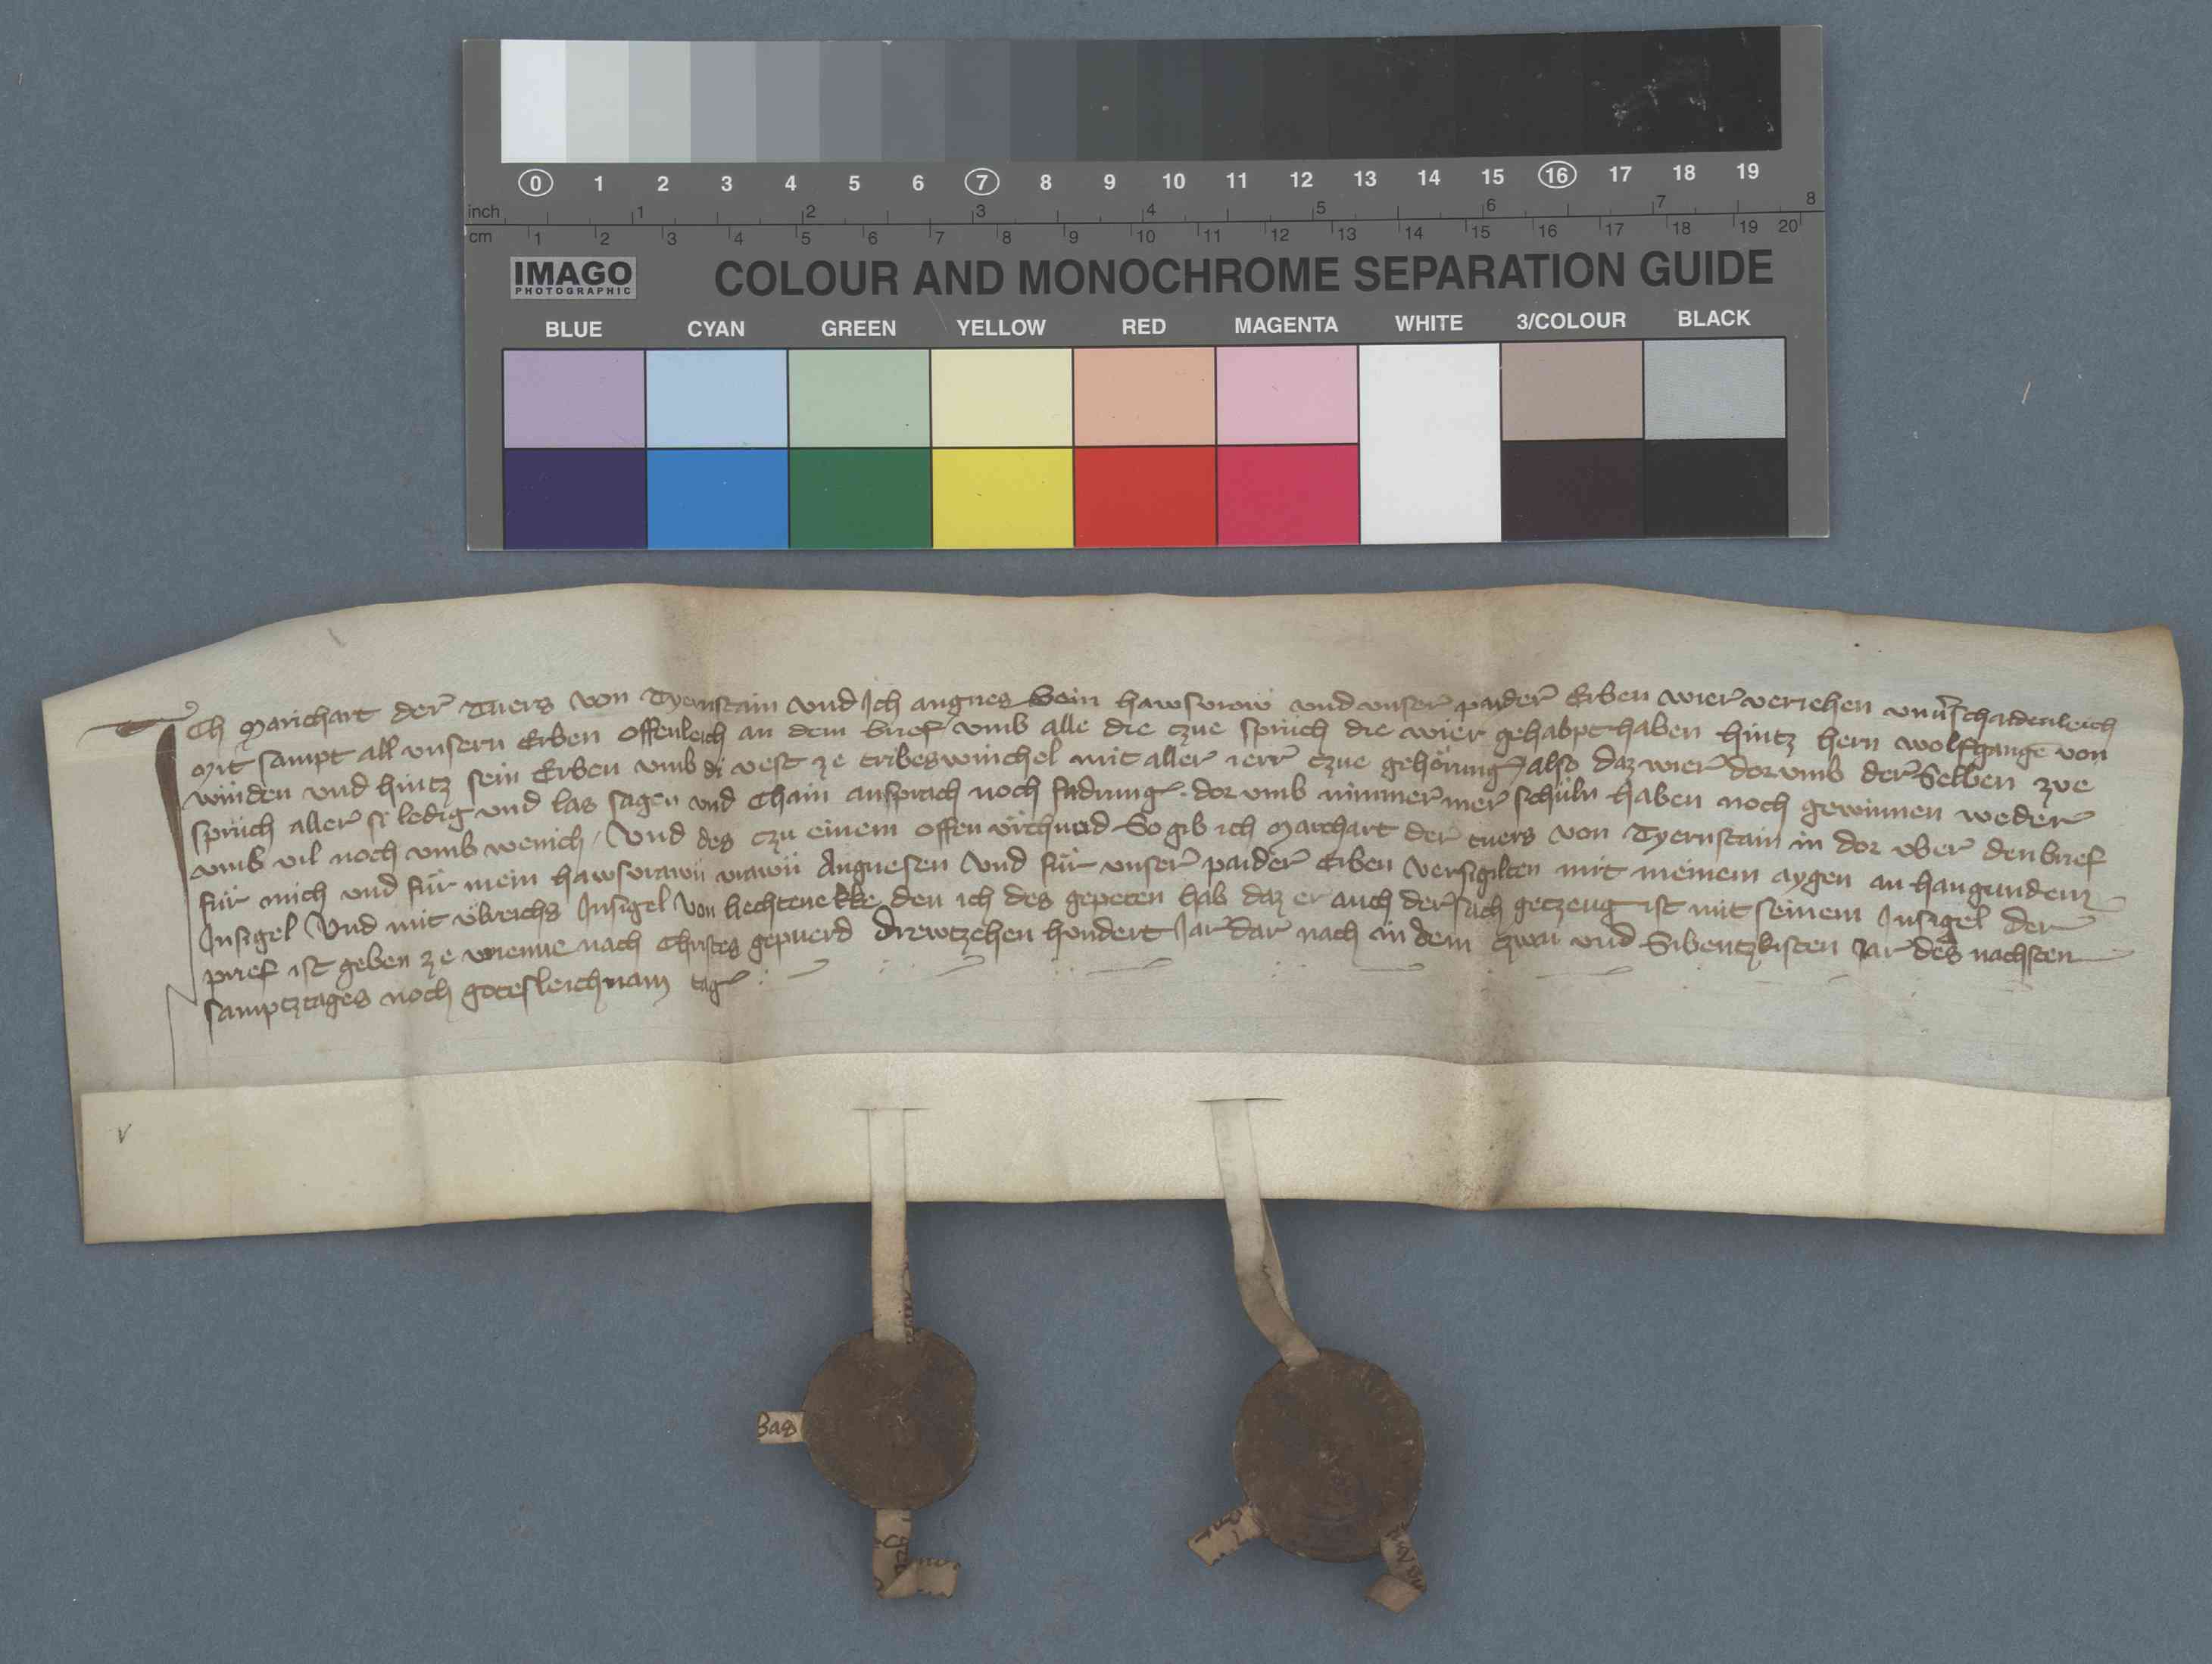 0 1 2 3 4 5 6 7 8 9 10 11 12 13 14 15 16 17 18 19
inch 1 2 3 4 5 6 7 8
cm 1 2 3 4 5 6 7 8 9 10 11 12 13 14 15 16 17 18 19 20
IMAGO PHOTOGRAPHIC COLOUR AND MONOCHROME SEPARATION GUIDE
BLUE CYAN GREEN YELLOW RED MAGENTA WHITE 3/COLOUR BLACK
ICh Marichart der Tuers von Tyernstain vnd Ich angnes sein hawsvrow vnd vnser paider Erben wier veriehen vnuerschaidenleich
mit sampt all vnsern Erben Offenleich an dem brief vmb alle die czue sprüch die wier gehabpt haben hintz hern wolfgange von
winden vnd hintz sein Erben vmb di vest ze tribeswinchel mit aller ierr czue gehörung also daz wier dor vmb der Selben zve
sprüch aller si ledig vnd las sagen vnd Chain ansprach noch fadrung dor vmb nimmer mer schüln haben noch gewinnen weder
vmb vil noch vmb wenich / Vnd des czu einem offen vrchund So gib ich Marchart der tuers von Tyernstain in dor vber den brief
für mich vnd für mein hawsvrawü vrawü Angnesen Vnd für vnser paider Erben versigilten mit meinem aygen an hangundem
Insigel Vnd mit vlreichs Insigel von liechtenekke den ich des gepeten hab daz er auch der sach getzeug ist mit seinem Insigel der
prief ist geben ze wienne nach Christes gepuerd Drewtzehen hundert Jar dar nach in dem zwai vnd Sibentzkisten Jar des nachsten
samptztages noch gotesleichnam tag
v